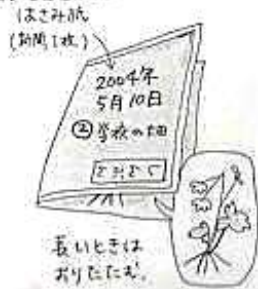 はさみ紙
(新聞1枚)
2004年
5月10日
②学校の畑
長いときは
おりたたむ。